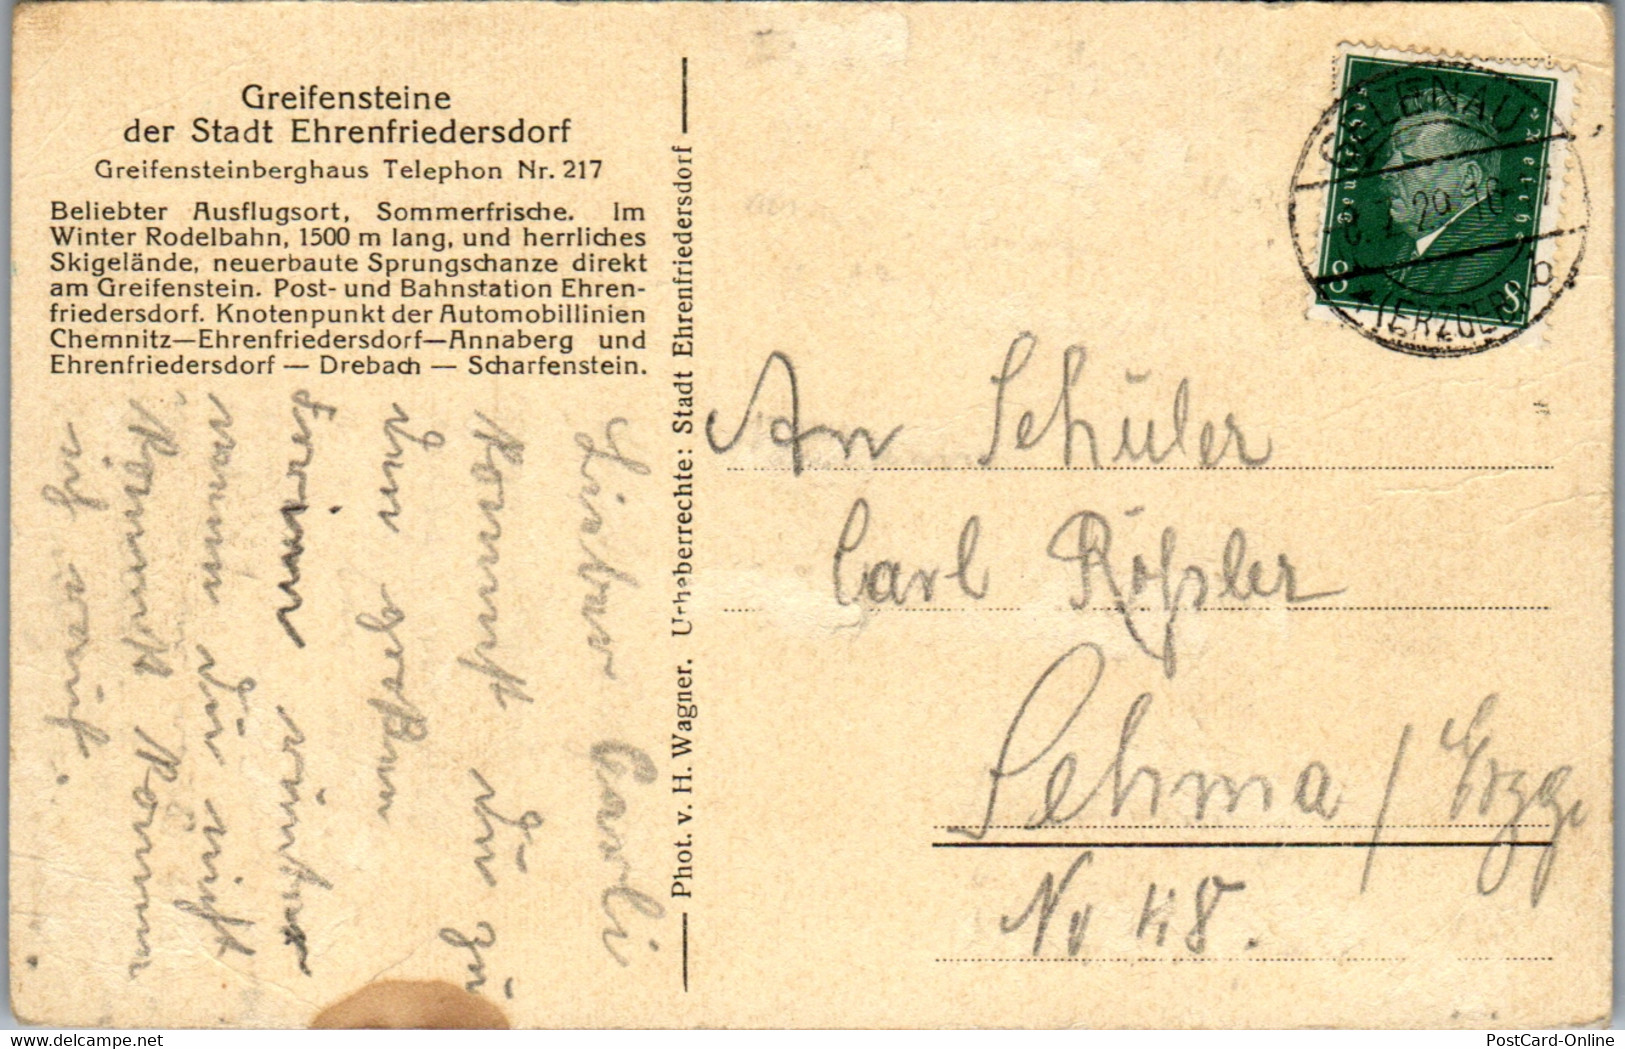 Greifensteine
der Stadt Ehrenfriedersdorf
Greifensteinberghaus Telephon Nr. 217
Beliebter Ausflugsort, Sommerfrische. Im
Winter Rodelbahn, 1500 m lang, und herrliches
Skigelände, neuerbaute Sprungschanze direkt
am Greifenstein. Post- und Bahnstation Ehren-
friedersdorf. Knotenpunkt der Automobillinien
Chemnitz—Ehrenfriedersdorf—Annaberg und
Ehrenfriedersdorf — Drebach — Scharfenstein.
Lieber Carli
Kommst Du zu
uns
Ferien
wenn Du nicht
kommst komm
ich zu Dir.
Phot. v. H. Wagner. Urheberrechte: Stadt Ehrenfriedersdorf
GELENAU
29.10
b
(ERZGEB)
Deutsches Reich
8 8
An Schüler
Carl Rößler
Sehma / Erzg.
No 48.
PostCard-Online